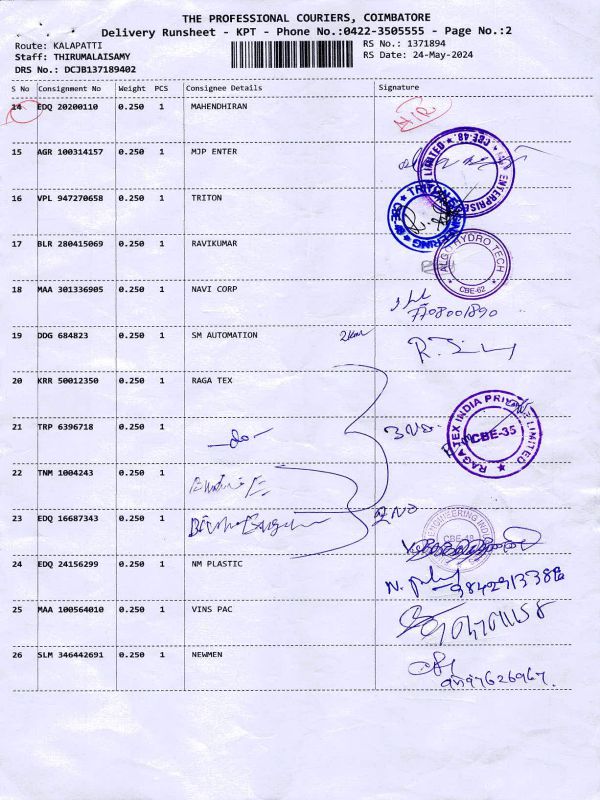 THE PROFESSIONAL COURIERS, COIMBATORE
Delivery Runsheet - KPT - Phone No.:0422-3505555 - Page No.:2
Route: KALAPATTI
RS No.: 1371894
Staff: THIRUMALAISAMY
RS Date: 24-May-2024
DRS No.: DCJB137189402
S No Consignment No Weight PCS Consignee Details Signature
14 EDQ 20200110 0.250 1 MAHENDHIRAN
15 AGR 100314157 0.250 1 MJP ENTER
16 VPL 947270658 0.250 1 TRITON
17 BLR 280415069 0.250 1 RAVIKUMAR
ALGO HYDRO TECH
CBE-62
18 MAA 301336905 0.250 1 NAVI CORP
19 DDG 684823 0.250 1 SM AUTOMATION
20 KRR 50012350 0.250 1 RAGA TEX
RAGATEX INDIA PRIVATE LIMITED
CBE-35
21 TRP 6396718 0.250 1 -do-
22 TNM 1004243 0.250 1
23 EDQ 16687343 0.250 1
2 NO
24 EDQ 24156299 0.250 1 NM PLASTIC
25 MAA 100564010 0.250 1 VINS PAC
26 SLM 346442691 0.250 1 NEWMEN
9597626967